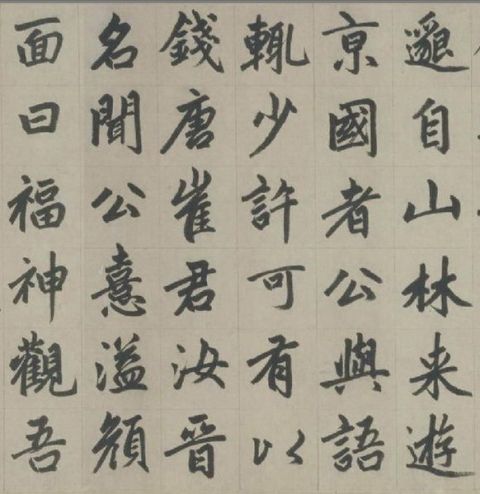 邈自山林来遊
亰國者公與語
輒少許可有以
錢唐崔君汝晉
名聞公憙溢顔
面曰福神觀吾